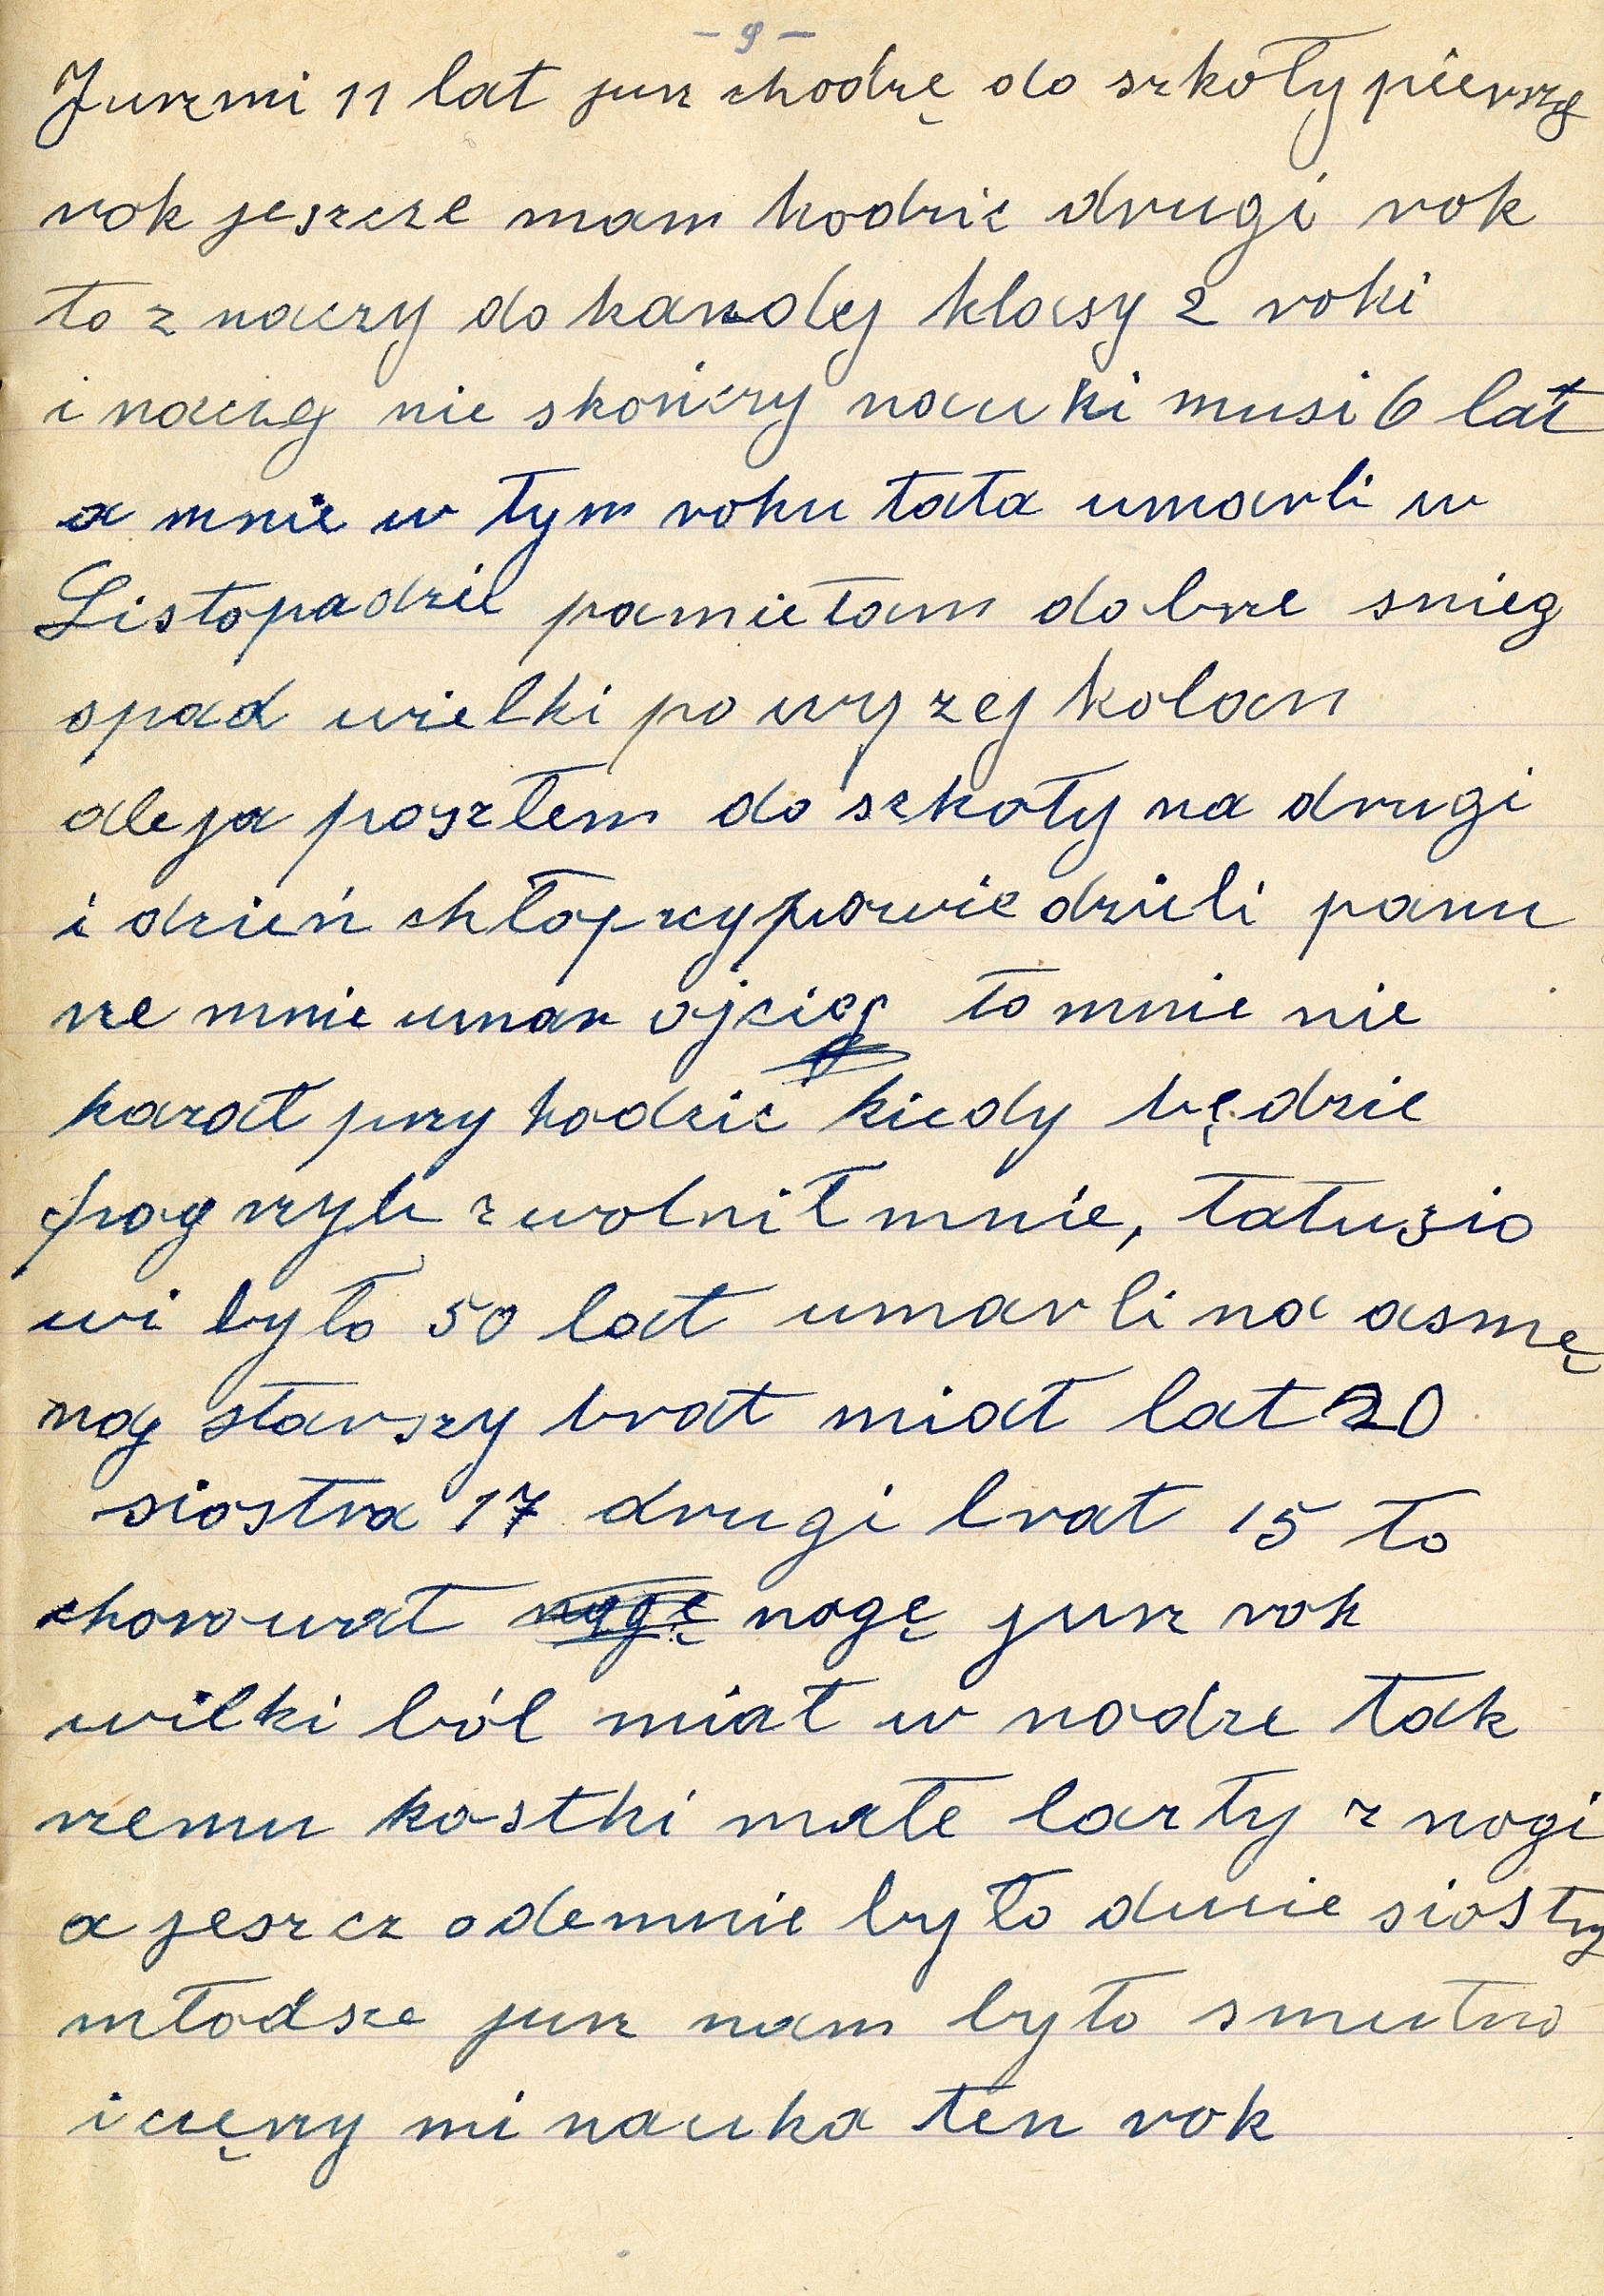 – 9 –
Jurzmi 11 lat jurz chodzę do szkoły pierszy
rok jeszcze mam hodzic drugi rok
to z naczy do karzdej klasy 2 roki
i naczej nie skończy nauki musi 6 lat
a mnie w tym roku tata umarli w
Listopadzie pamietam dobrze snieg
opad wielki po wyzej kolan
ale ja poszłem do szkoły na drugi
i dzień chłopcy powiedzieli panu
rze mnie umar ojciec to mnie nie
kazał przy hodzić kiedy będzie
pogrzyb zwolnił mnie, tatusio
wi było 50 lat umarli na asmę
naj starszy brat miał lat 20
siostra 17 drugi brat 15 to
chorował nogę nogę jurz rok
wilki ból miał w nodze tak
rzemu kostki małe lazły z nogi
a jeszcz odemnie było dwie siostry
młodsze jurz nam było smutno
i cięrzy mi nauka ten rok